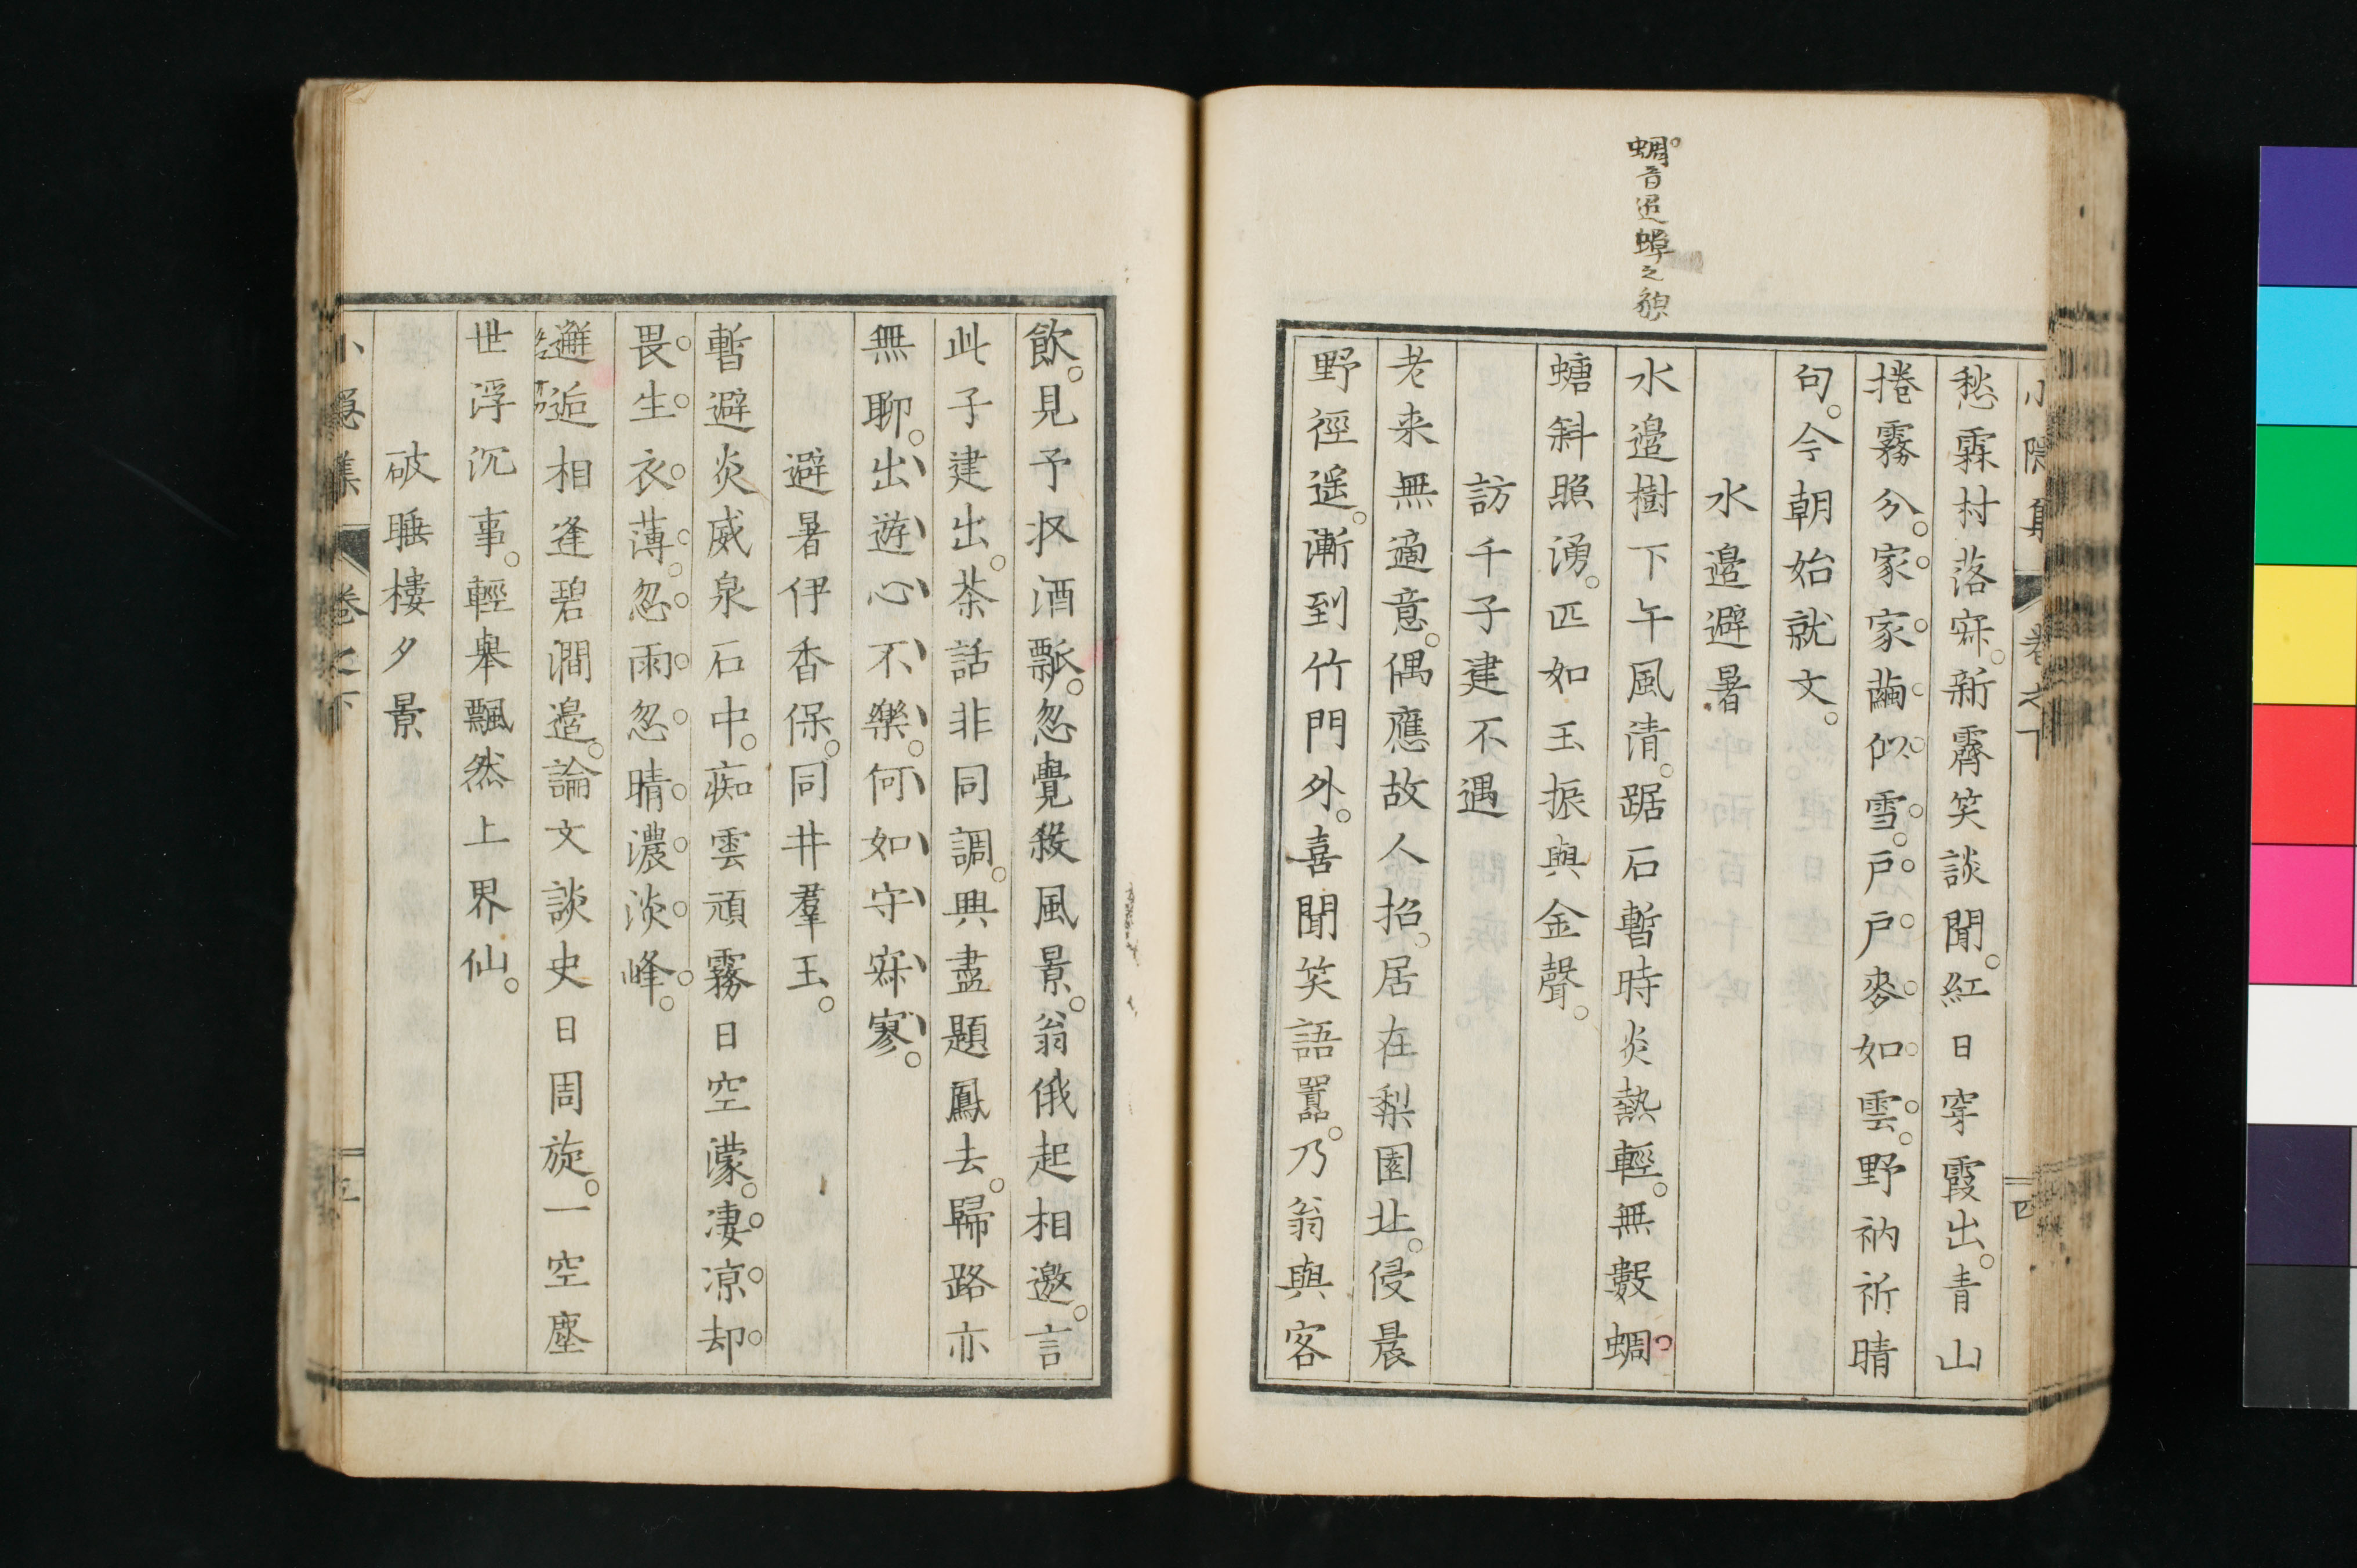 蜩音迢蟬之貌
小隱集 卷之下 四
愁霖村落寂。新霽笑談聞。紅日穿霞出。青山
捲霧分。家家繭似雪。戶戶麥如雲。野衲祈晴
句。今朝始就文。
水邉避暑
水邉樹下午風清。踞石暫時炎熱輕。無數蜩
螗斜照湧。匹如玉振與金聲。
訪千子建不遇
老来無適意。偶應故人招。居在梨園北。侵晨
野徑遥。漸到竹門外。喜聞笑語囂。乃翁與客
飲。見予投酒瓢。忽覺殺風景。翁俄起相邀。言
此子建出。茶話非同調。興盡題鳳去。歸路亦
無聊。出遊心不樂。何如守寂寥。
避暑伊香保。同井羣玉。
暫避炎威泉石中。痴雲頑霧日空濛。凄凉却
畏生衣薄。忽雨忽晴濃淡峰。
邂逅相逢碧澗邉。論文談史日周旋。一空塵
世浮沉事。輕舉飄然上界仙。
破睡樓夕景
小隱集 卷之下